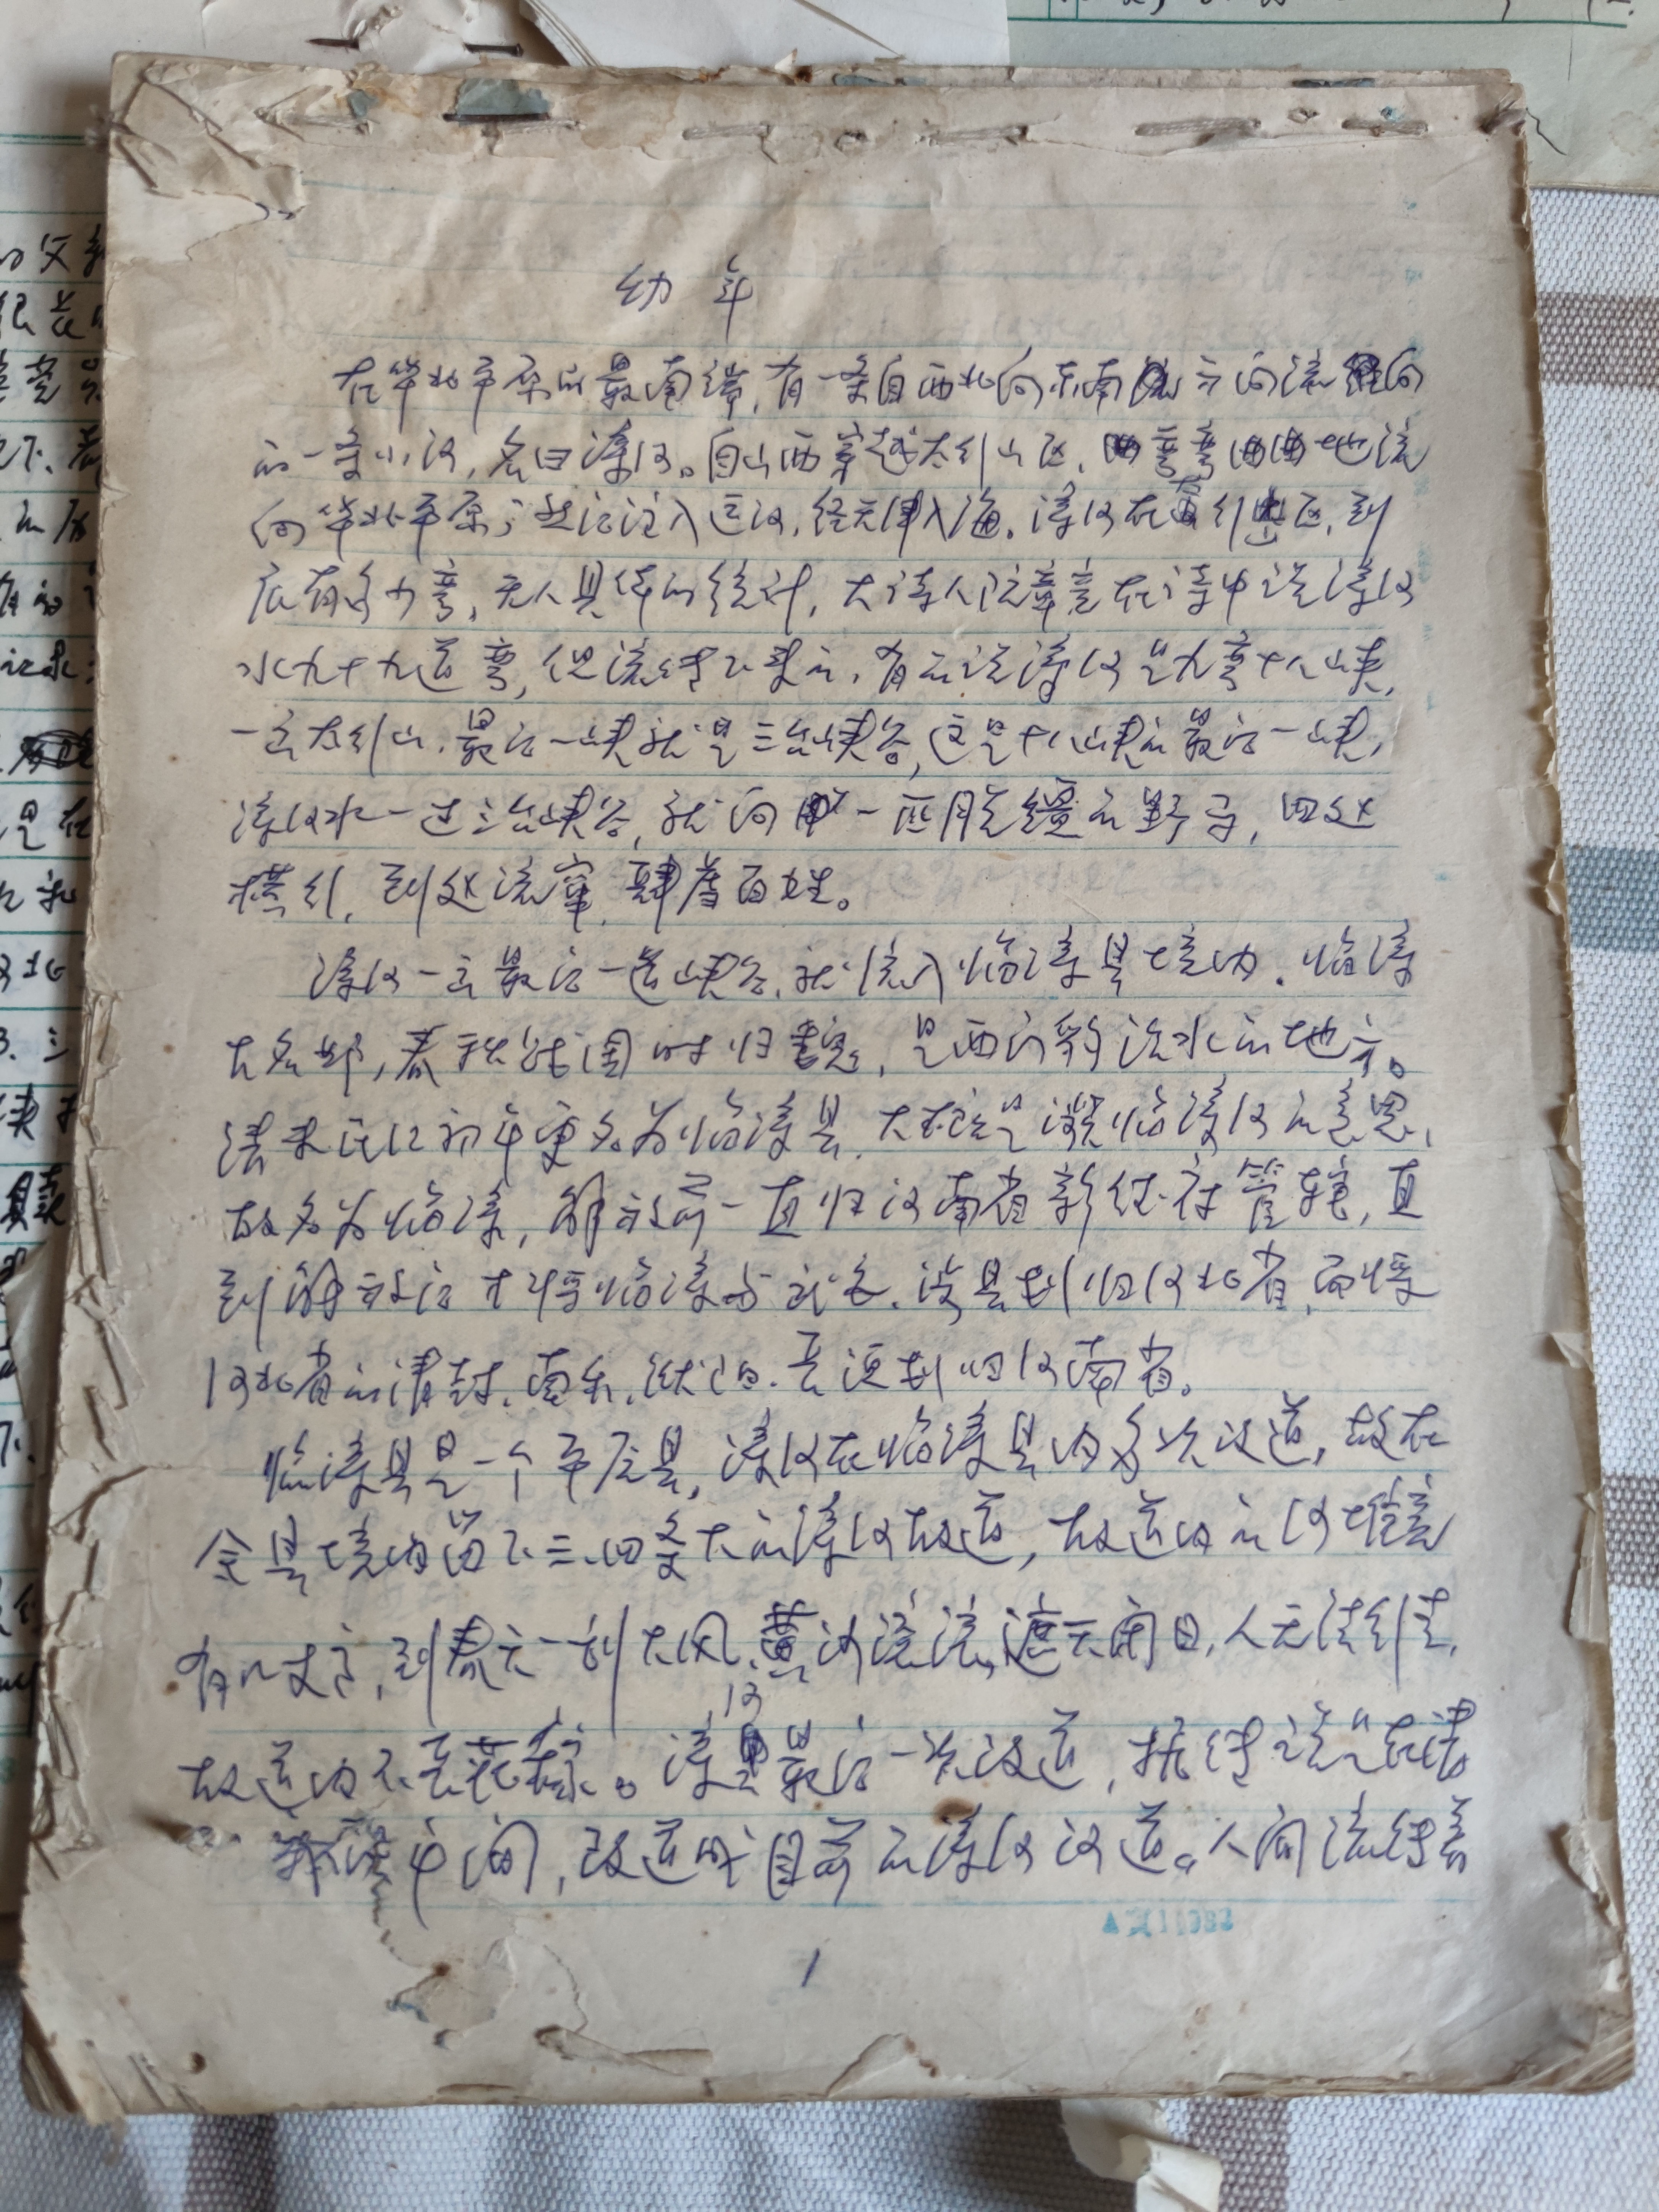 幼年
在华北平原的最南端,有一条自西北向东南方向流向
的一条小河,名曰漳河。自山西穿越太行山区,弯弯曲曲地流
向华北平原;然后注入运河,经天津入海。漳河在太行山区,到
底有多少弯,无人具体的统计,大诗人阮章竞在诗中说漳河
水九十九道弯,但流传下来的,有的说漳河是九弯十八峡,
一出太行山,最后一峡就是三台峡谷,这是十八峡的最后一峡,
漳河水一过三台峡谷,就向一匹脱缰的野马,四处
横行,到处流窜,肆虐百姓。
漳河一出最后一道峡谷,就流入临漳县境内。临漳
古名邺,春秋战国时归魏,是西门豹治水的地方。
清末民国初年更名为临漳县,大概是濒临漳河的意思,
故名为临漳,解放前一直归河南省新乡府管辖,直
到解放后才将临漳与武安、涉县划归河北省,而将
河北省的清封、南乐、濮阳、长垣划归河南省。
临漳县是一个平原县,漳河在临漳县内多次改道,故在
全县境内留下三、四条大的漳河故道,故道内的河堆高
有八丈高,到春天一刮大风,黄沙滚滚,遮天闭日,人无法行走,
故道内不长花禄。漳河最后一次改道,据传说是在清
中间,改道成目前的漳河河道。人间流传着
1